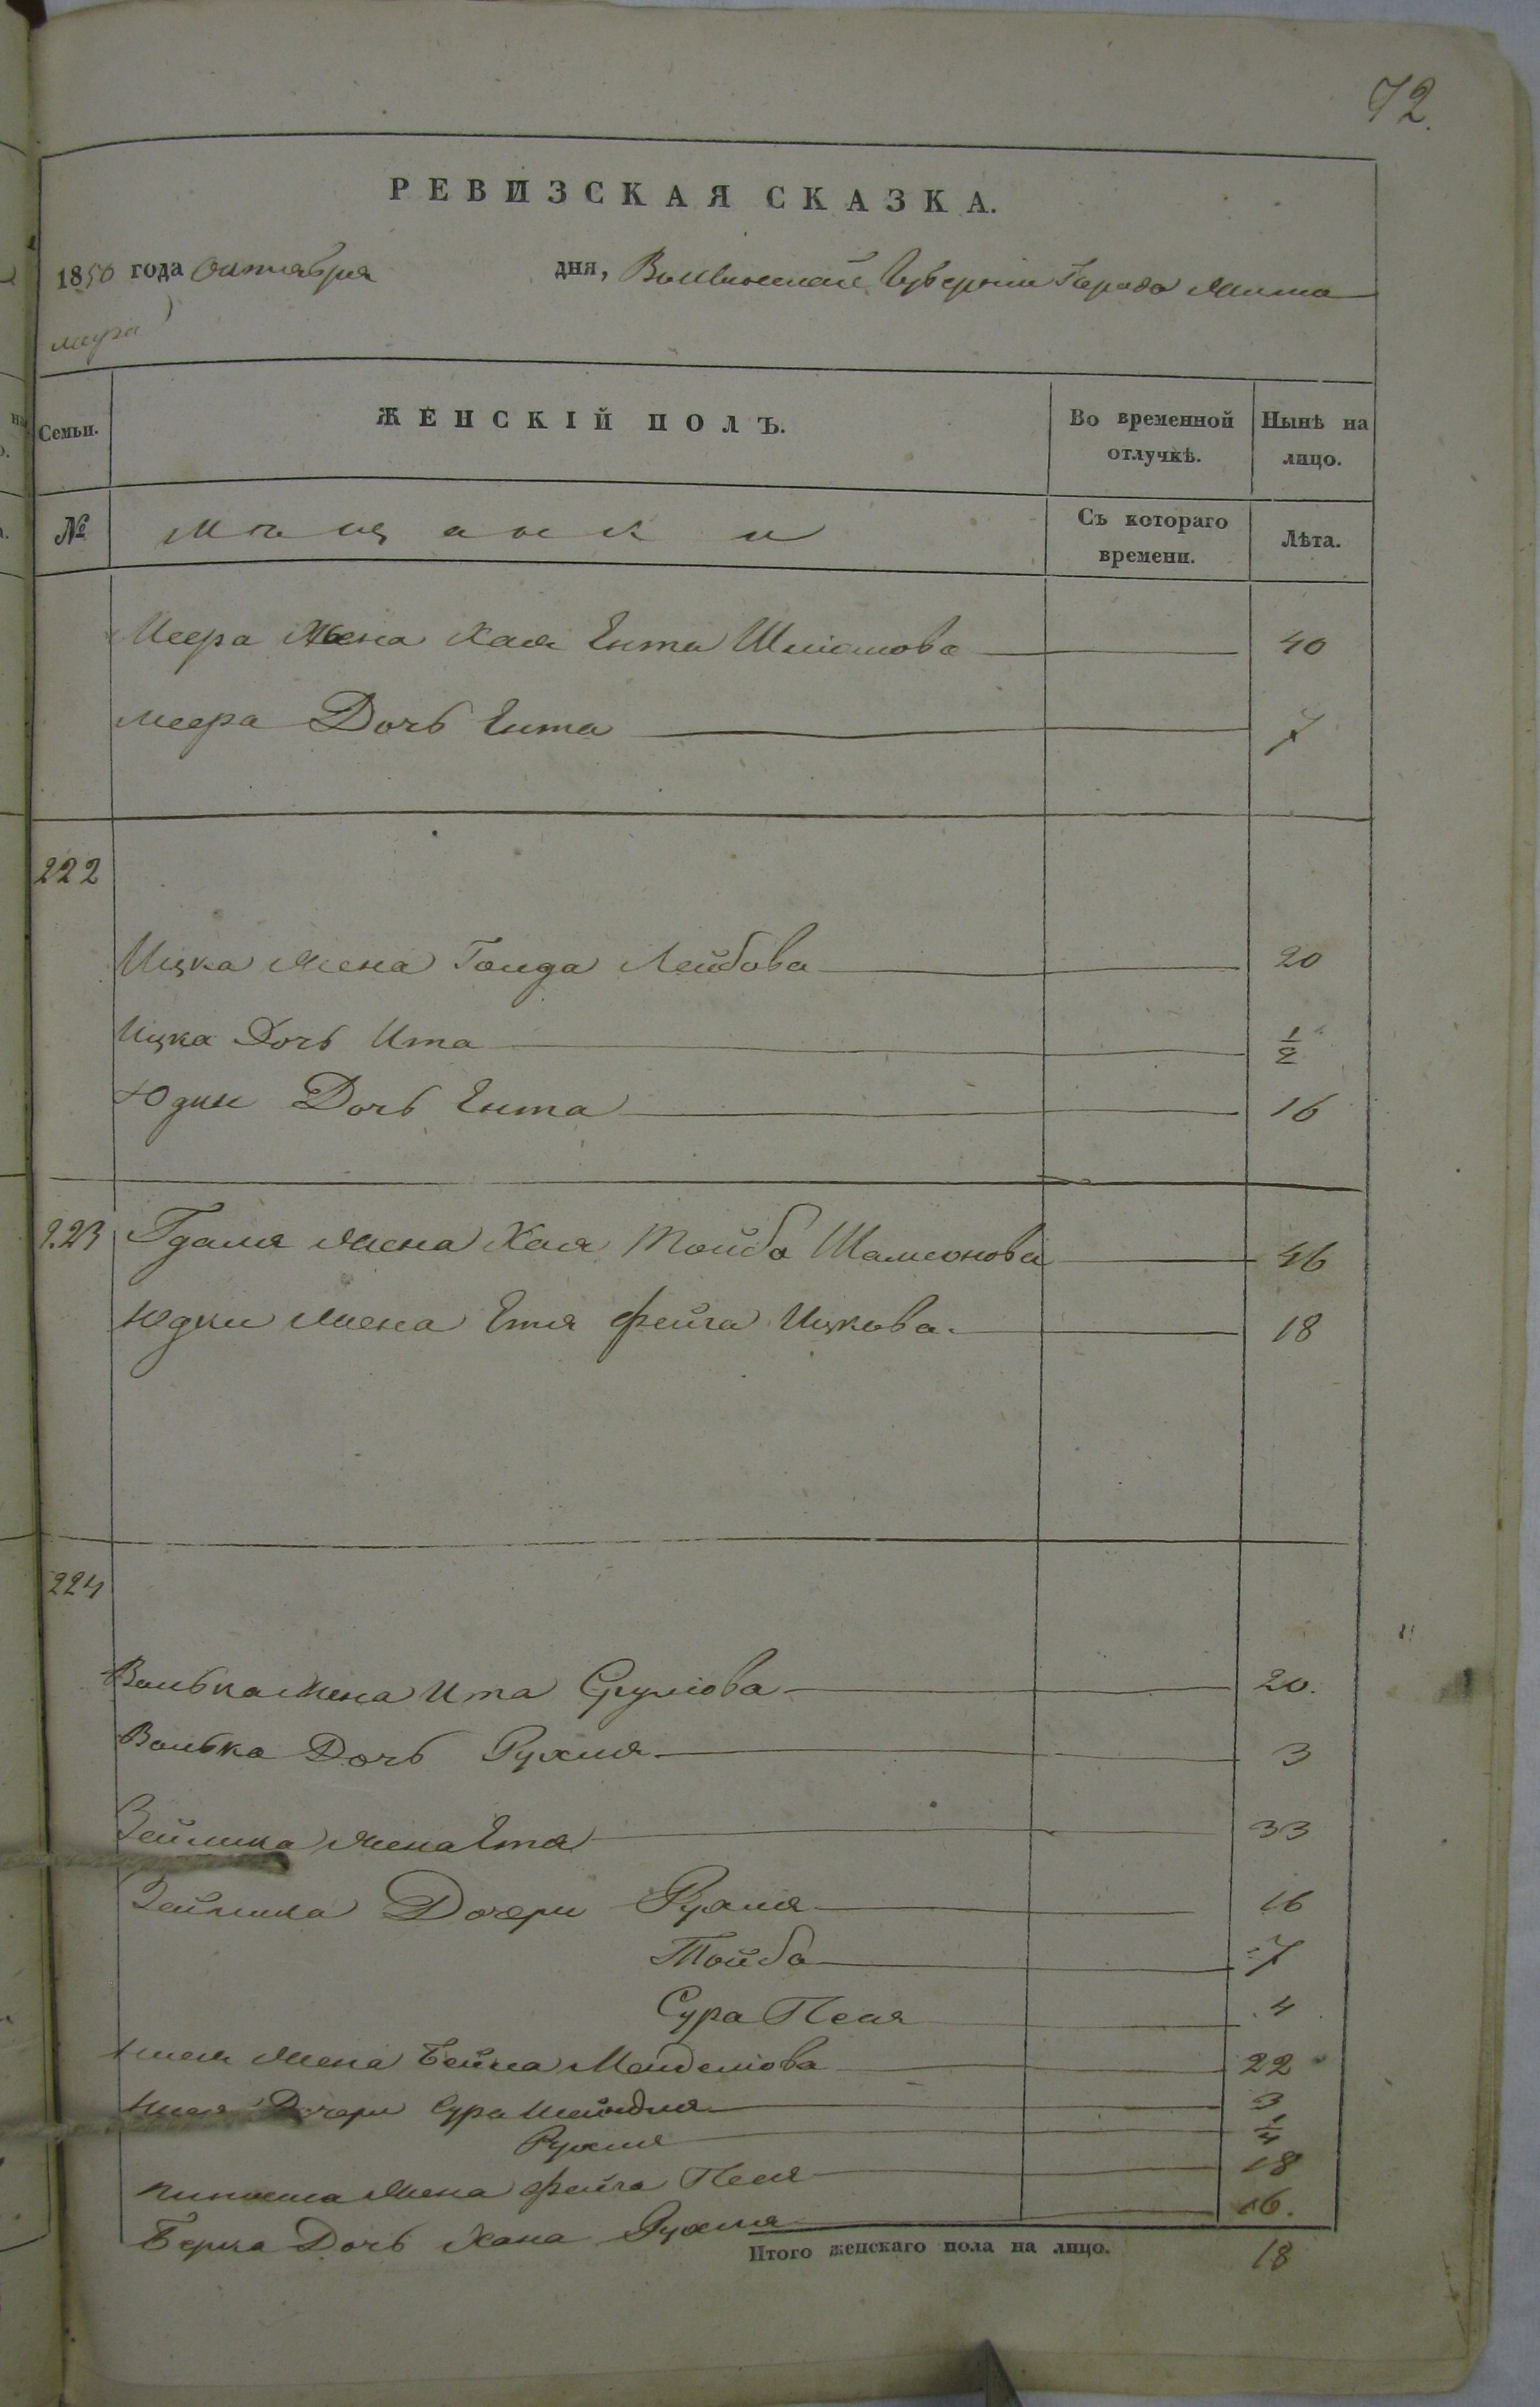 72.
РЕВИЗСКАЯ СКАЗКА.
1850 года Октября дня, Волынской Губернии Города Жито
мира
Семьи. ЖЕНСКІЙ ПОЛЪ. Во временной отлучкѣ. Нынѣ на лицо.
№ Мѣщанки Съ котораго времени. Лѣта.
Меера Жена Хая Ента Шліомова 40
Меера Дочь Ента 7
222
Ицка жена Голда Лейбова 20
Ицка Дочь Ита 1/2
Юдки Дочь Ента 16
223 Гдаля жена Хая Тойба Шамсонова 46
Юдки жена Етя Фейга Ицкова. 18
224
Волька жена Ита Срулова 20.
Волька Дочь Рухля 3
Зейлика жена Етя 33
Зейлика Дочери Рухля 16
Тойба 7
Сура Песя 4
жена Бейла Менделiова 22
Дочери Сура 3
Рухля 1/4
жена Фейга Песя 18
Берка Дочь Хана Рухля 16.
Итого женскаго пола на лицо. 18